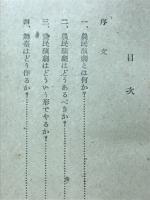 目次
序文
一、農民演劇とは何か?
二、農民演劇はどうあるべきか?
三、農民演劇はどういう形でやるか?
四、舞臺はどう作るか?